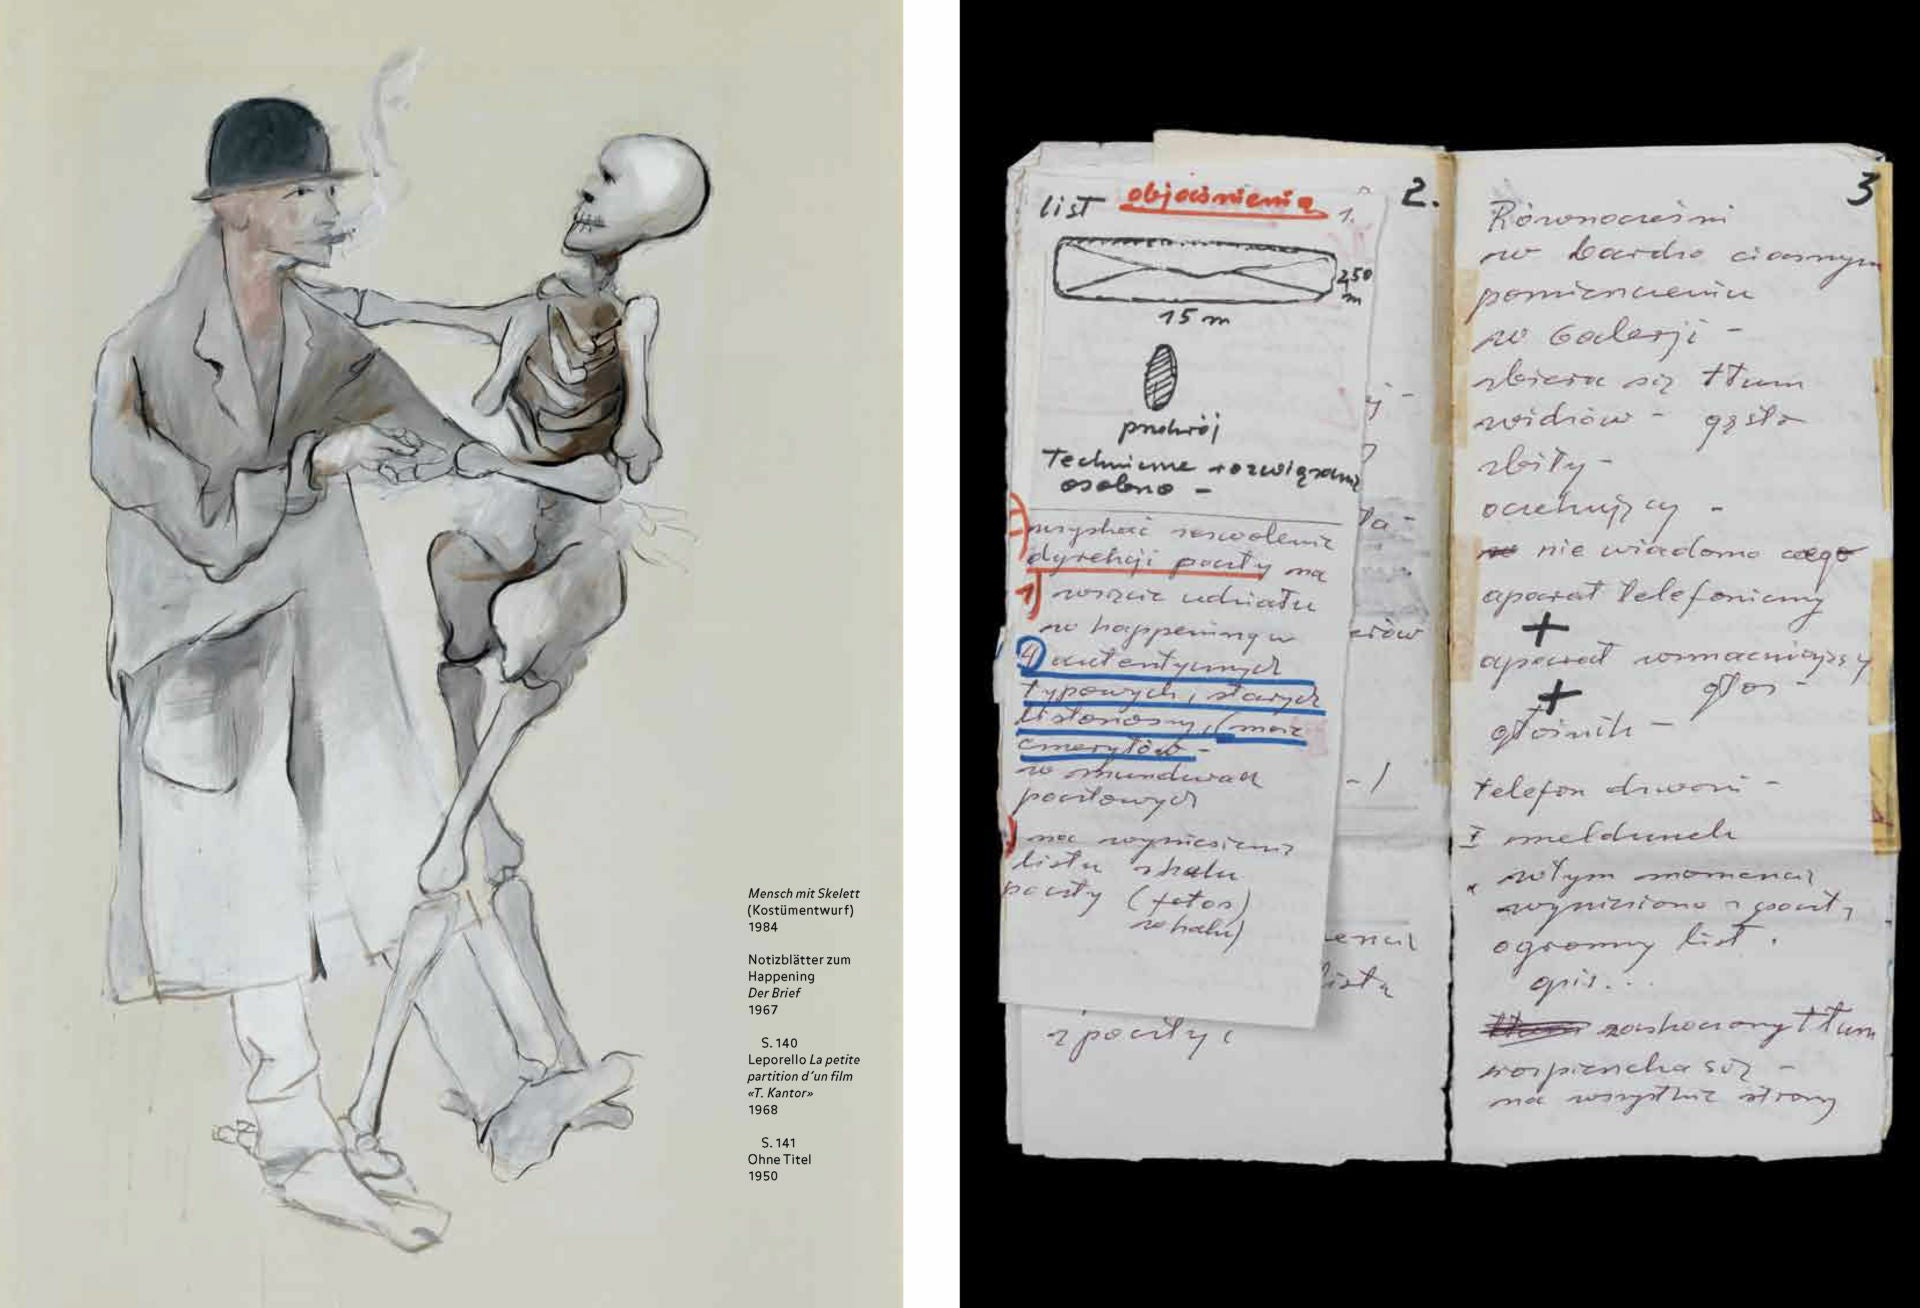 Mensch mit Skelett
(Kostümentwurf)
1984
Notizblätter zum
Happening
Der Brief
1967
S. 140
Leporello La petite
partition d'un film
«T. Kantor»
1968
S. 141
Ohne Titel
1950
list objaśnienia 1.
2,50
m
15 m
przekrój
Techniczne rozwiązanie
osobno –
uzyskać zezwolenie
dyrekcji poczty na
1) wzięcie udziału
w happeningu
4 autentycznych
typowych, starych
listonoszy, (może
emerytów –
w mundurach
pocztowych
na wyniesienie
listu z hallu
poczty (fotos)
z hallu)
z poczty
2.
3
Równocześni
w bardzo ciasnym
pomieszczeniu
w Galerji –
zbiera się tłum
widzów – gęsto
zbity –
oczekujący –
nie wiadomo czego
aparat telefoniczny
+
aparat wzmacniający
+ głos –
głośnik –
telefon dzwoni –
I meldunek
w tym momencie
wyniesiono z poczty
ogromny list.
opis...
zaskoczony tłum
rozpierzcha się –
na wszystkie strony